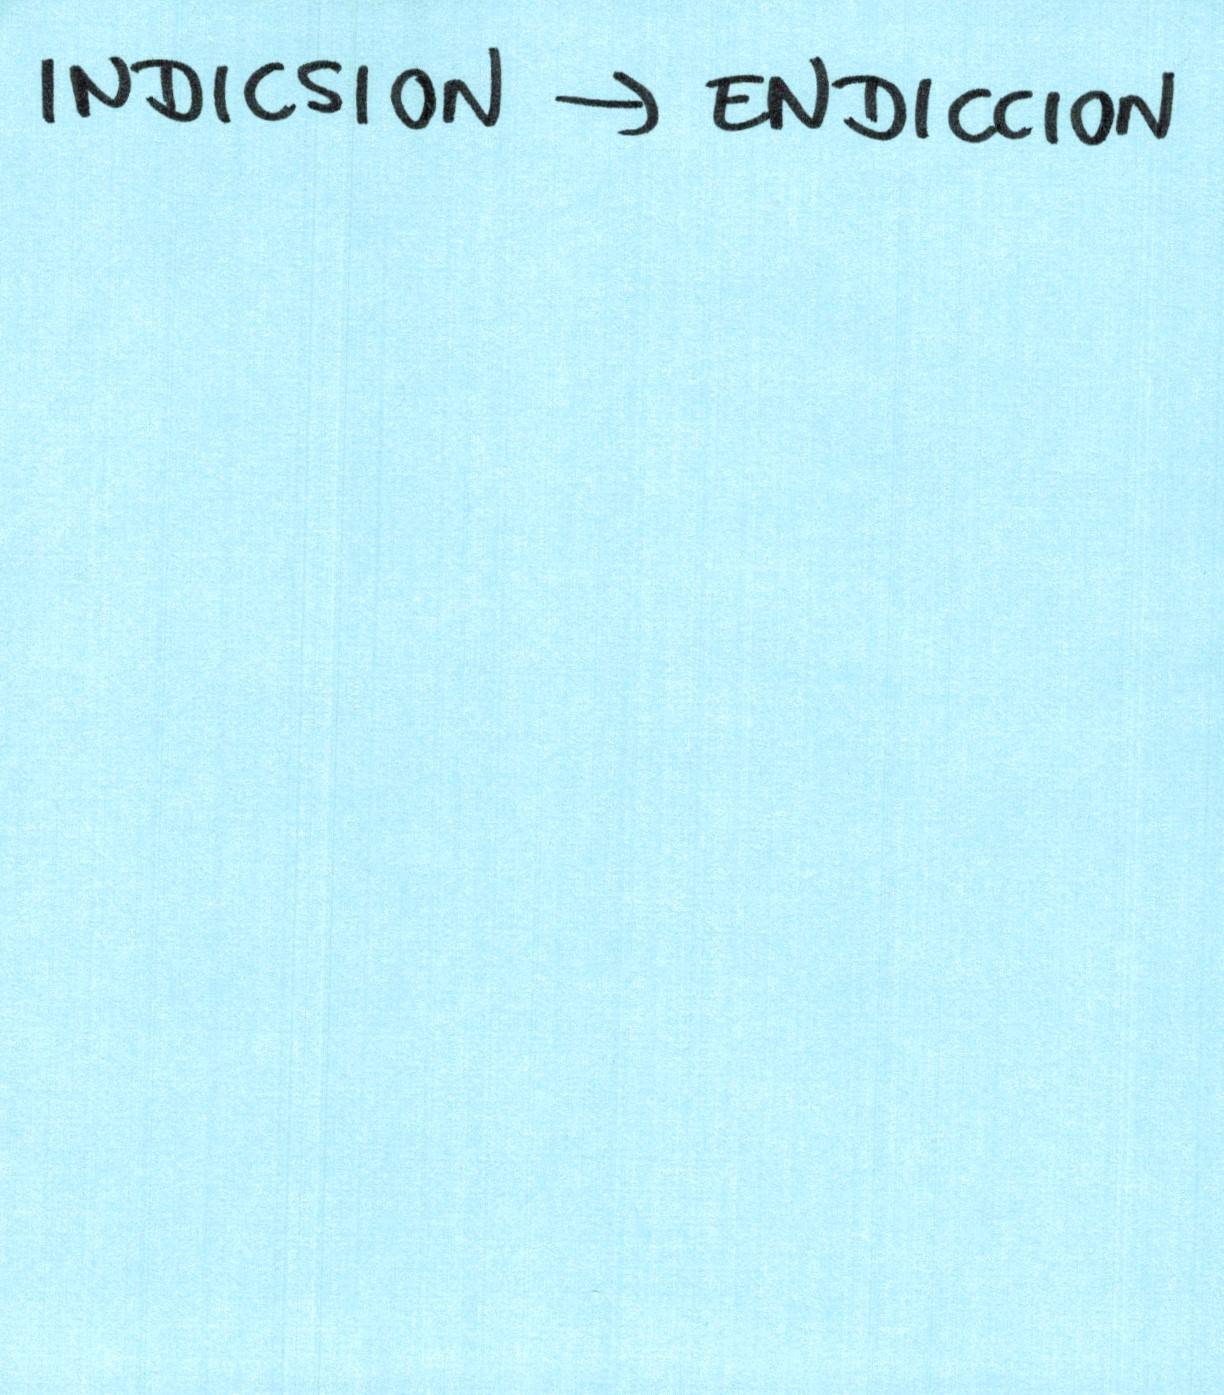 INDICSION → ENDICCION